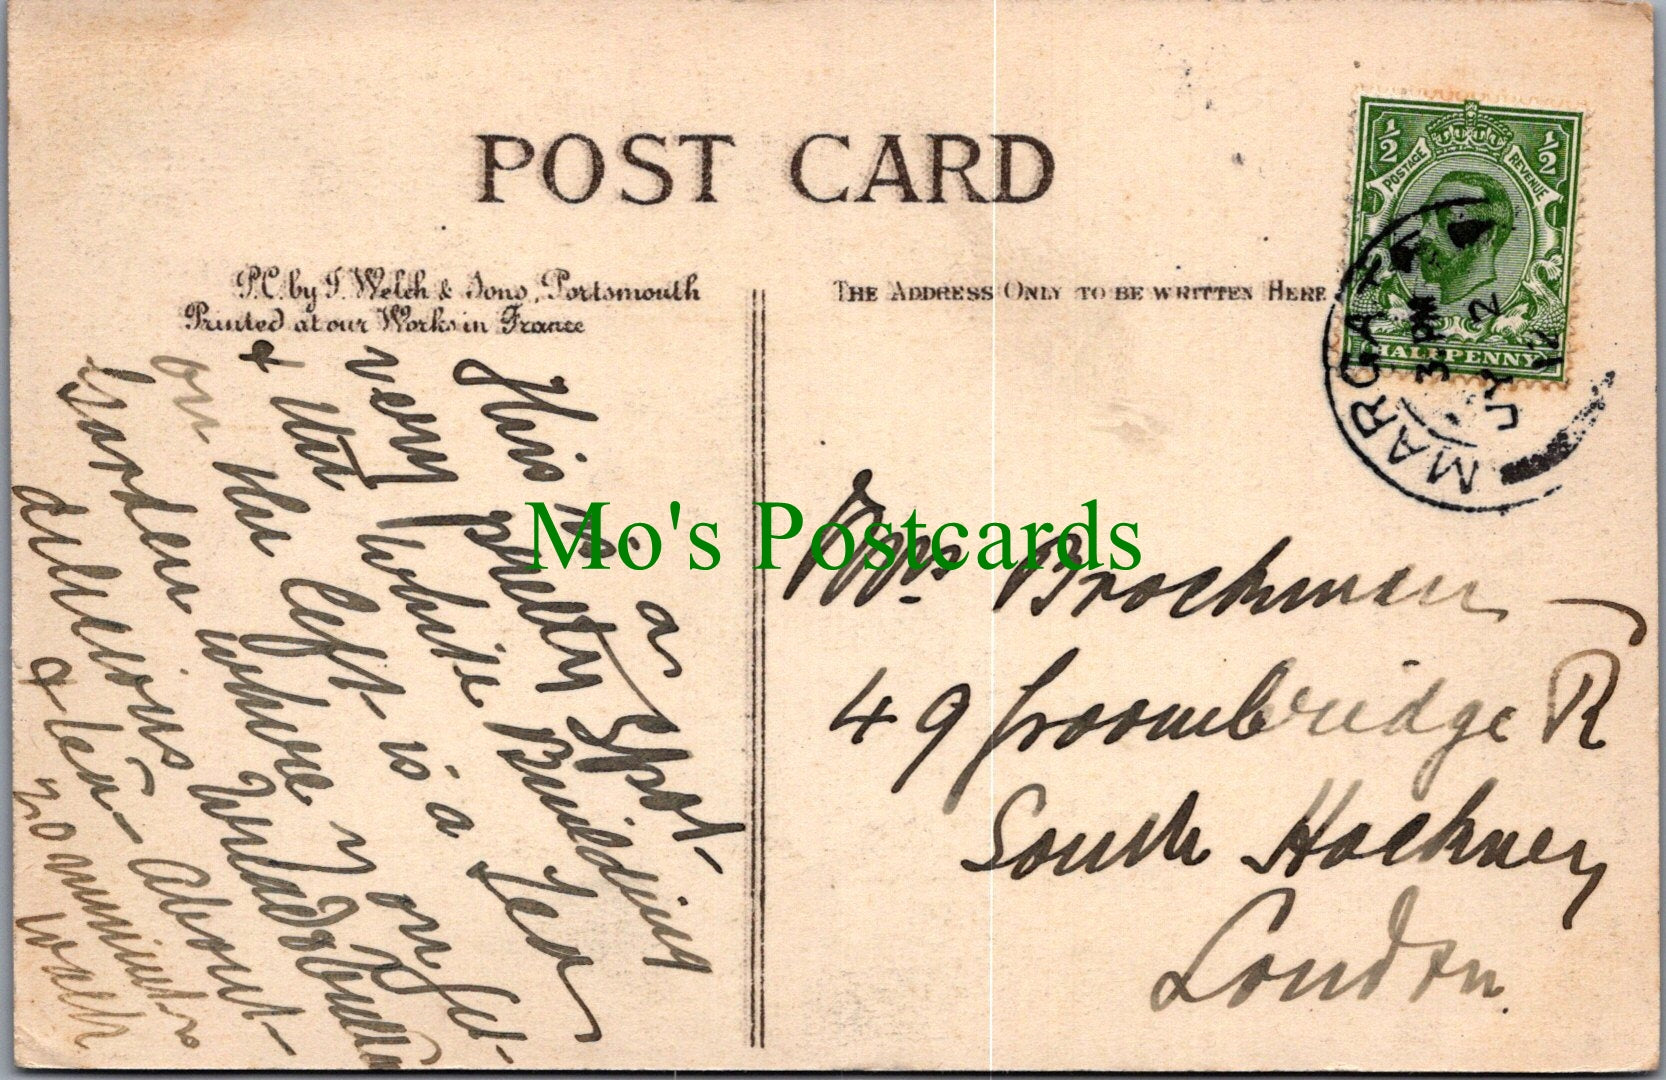 POST CARD
P.C. by J. Welch & Sons, Portsmouth
Printed at our Works in France
THE ADDRESS ONLY TO BE WRITTEN HERE
½ ½
POSTAGE REVENUE
HALFPENNY
MARGATE
3 PM
JY 2
12
This is a
very pretty Spot
& the white Building
on the left is a Tea
Garden where you get
delicious
& tea about
20 minutes
walk
Mrs Brockman
49 Groombridge R
South Hackney
London.
Mo's Postcards